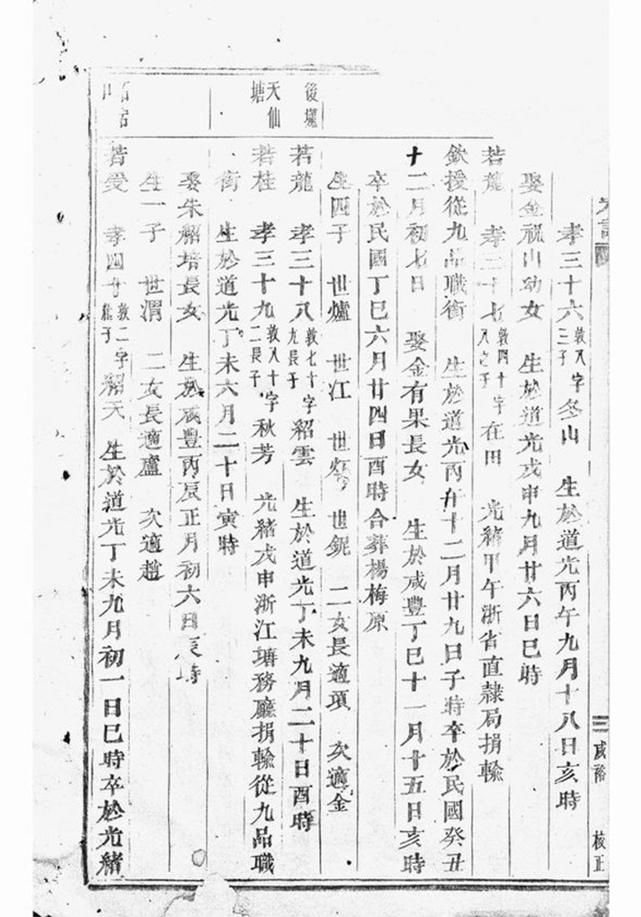 孝三十六敦入字三子冬山　生於道光丙午九月十八日亥時
娶金視山幼女　生於道光戊申九月廿六日巳時
若龍　孝三十七敦四十字在田　光緒甲午浙省直隸局捐輸
欽授從九品職銜　生於道光丙午十二月廿九日子時卒於民國癸丑
十二月初七日　娶金有果長女　生於咸豐丁巳十一月十五日亥時
卒於民國丁巳六月廿四日酉時合葬楊梅原
生四子　世爐　世江　世　世鈮　二女長適項　次適金
後塘
若龍　孝三十八敦七十字九長子紹雲　生於道光丁未九月二十日酉時
天仙塘
若桂　孝三十九敦入十字二長子秋芳　光緒戊申浙江塘務廳捐輸從九品職
銜　生於道光丁未六月二十日寅時
娶朱紹培長女　生於咸豐丙辰正月初六日辰時
生一子　世渭　二女長適盧　次適趙
若受　孝四十敦二字子紹天　生於道光丁未九月初一日巳時卒於光緒
三　咸裕　校正